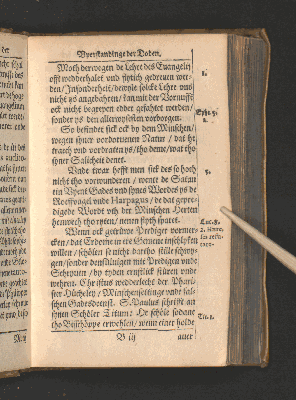 Vperstandinge der Doden.
Moth derwegen de Lehre des Euangelij
offt wedderhalet vnd flytich gedreuen wer-
den / Insonderheit / dewyle solcke Lehre vns
nicht ys angebahren / kan mit der Vornufft
ock nicht begrepen edder gefatet werden /
sonder ys den allerwysesten vorborgen.
So befindet sick ock by dem Minschen /
wegen syner vordoruenen Natur / dat he
traech vnd vordraten ys / tho dende / wat tho
syner Salicheit denet.
Vnde twar hefft men sick des so hoch
nicht tho vorwunderen / wente de Satan
ein Vyent Gades vnd synes Wordes ys de
Roeffvagel vnde Harpagus / de dat gepre-
digede Wordt vth der Minschen Herten
henwech tho ryten / nenen flyth sparet.
Wenn ock getruwe Prediger vormer-
cken / dat Erdome in de Gemene inschlyken
willen / schölen se nicht dartho stille schwy-
gen / sonder densüluigen mit Predigen vnde
Schryuen / by tyden ernstlick stüren vnde
wehren. Christus wedderlecht der Phari-
seer Hücheley / Minschensettinge vnde fal-
schen Gadesdenst. S. Paulus schrifft an
synen Schöler Titum: He schöle sodane
tho Bischöppe erwehlen / wenn einer holde
B iij
auer
1.
2.
3.
Luc. 8.
Tit. 1.